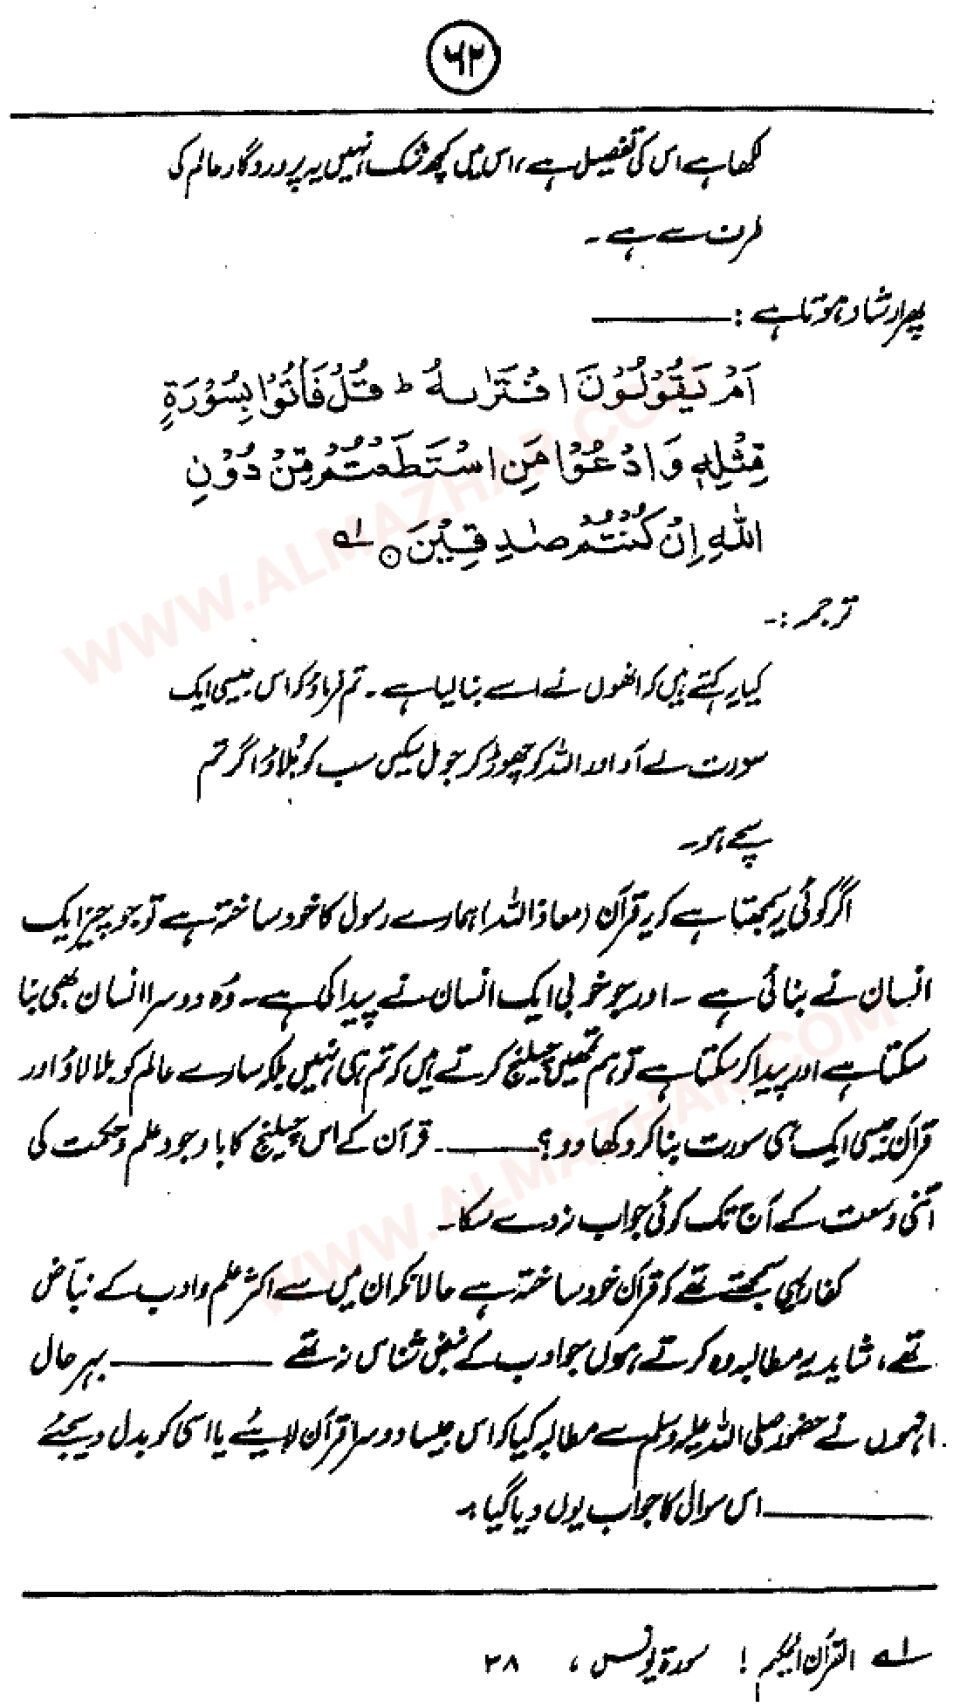 ۶۲
لکھا ہے اس کی تفصیل ہے، اس میں کچھ شک نہیں یہ پروردگار عالم کی
طرف سے ہے۔
پھر ارشاد ہوتا ہے: ـــــــــــ
اَمْ يَقُوْلُوْنَ افْتَرٰىهُ ؕ قُلْ فَأْتُوْا بِسُوْرَةٍ
مِّثْلِهٖ وَادْعُوْا مَنِ اسْتَطَعْتُمْ مِّنْ دُوْنِ
اللّٰهِ اِنْ كُنْتُمْ صٰدِقِيْنَ ۝ ؎۱
ترجمہ:۔
کیا یہ کہتے ہیں کہ انھوں نے اسے بنا لیا ہے۔ تم فرماؤ کہ اس جیسی ایک
سورت لے آؤ اور اللہ کو چھوڑ کر جو مل سکیں سب کو بُلاؤ اگر تم
سچے ہو۔
اگر کوئی یہ سمجھتا ہے کہ یہ قرآن (معاذ اللہ) ہمارے رسول کا خود ساختہ ہے تو جو چیز ایک
انسان نے بنائی ہے۔ اور جو خوبی ایک انسان نے پیدا کی ہے۔ وُہ دوسرا انسان بھی بنا
سکتا ہے اور پیدا کر سکتا ہے تو ہم تمھیں چیلنج کرتے ہیں کہ تم ہی نہیں بلکہ سارے عالم کو بلا لاؤ اور
قرآن جیسی ایک ہی سورت بنا کر دکھا دو؟ ـــــــــــ۔ قرآن کے اس چیلنج کا باوجود علم و حکمت کی
اتنی وسعت کے آج تک کوئی جواب نہ دے سکا۔
کفار یہی سمجھتے تھے کہ قرآن خود ساختہ ہے حالانکہ ان میں سے اکثر علم و ادب کے نبّاض
تھے، شاید یہ مطالبہ وہ کرتے ہوں جو ادب کے نبض شناس نہ تھے ـــــــــــ بہر حال
انہوں نے حضور صلی اللہ علیہ وسلم سے مطالبہ کیا کہ اس جیسا دوسرا قرآن لایئے یا اسی کو بدل دیجئے
ـــــــــــ اس سوال کا جواب یوں دیا گیا:۔
؎۱ القرآن الحکیم! سورۃ یونس، ۳۸
WWW.ALMAZHAR.COM
WWW.ALMAZHAR.COM